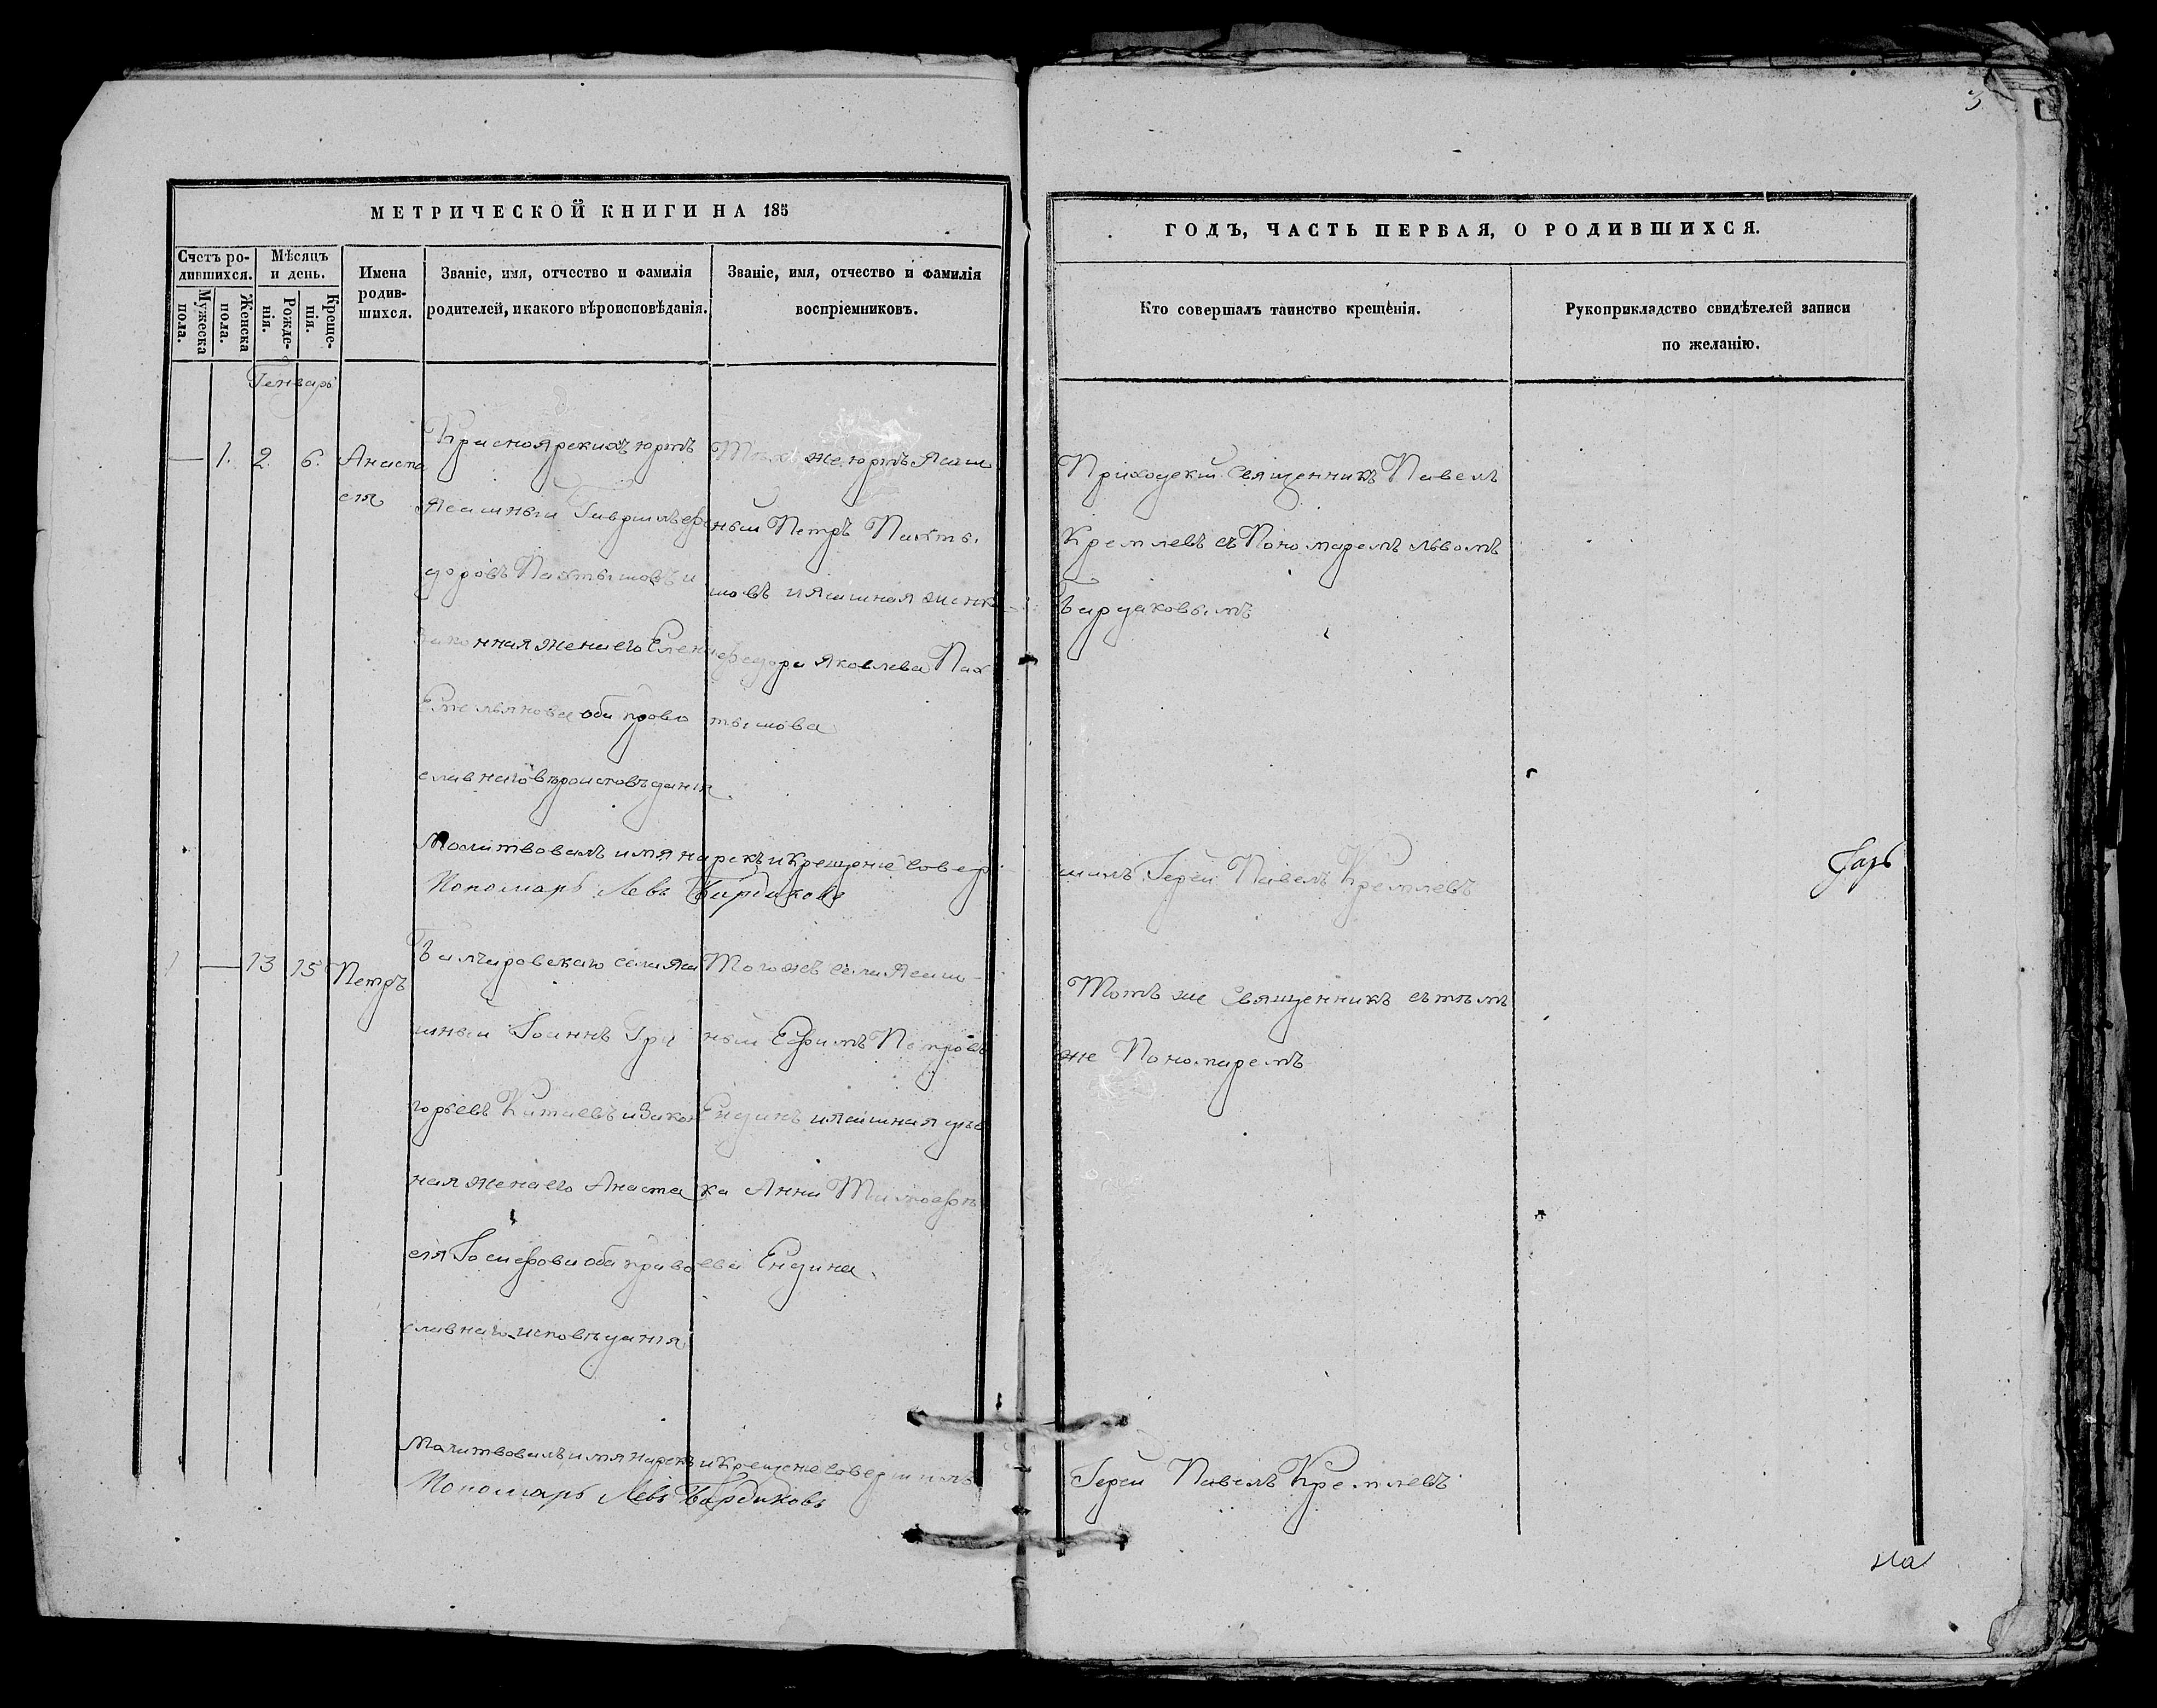 3
МЕТРИЧЕСКОЙ КНИГИ НА 185
ГОДЪ, ЧАСТЬ ПЕРВАЯ, О РОДИВШИХСЯ.
Счетъ ро-
дившихся.
Мужеска
пола.
Женска
пола.
Мѣсяцъ
и день.
Рожде-
нія.
Креще-
нія.
Имена
родив-
шихся.
Званіе, имя, отчество и фамилія
родителей, и какого вѣроисповѣданія.
Званіе, имя, отчество и фамилія
воспріемниковъ.
Кто совершалъ таинство крещенія.
Рукоприкладство свидѣтелей записи
по желанію.
Генварь
— 1. 2. 6.
Анаста
сія
Красноярскихъ юртъ
Ясашный Гавріилъ Фе
доровъ Пахтышовъ и
законная жена его Елена
Емельянова оба право
славнаго вѣроисповѣданія
Тѣхъ же юртъ Ясаш
ный Петръ Пахты
шовъ и ясашная женка
Федора Яковлева Пах
тышова
Приходскій Священникъ Павелъ
Кремлевъ съ Пономаремъ Львомъ
Бардаковымъ
Молитвовалъ имя нарекъ и Крещеніе Совер
шилъ Іерей Павелъ Кремлевъ
Пономарь Левъ Бардаковъ
1 — 13 15
Петръ
села Яса
шный Іоаннъ Гри
горьевъ Китаевъ и Закон
ная жена его Анаста
сія Іосифова оба право
славнаго исповѣданія
Того жъ села Ясаш
ный Ефимъ Петровъ
Ендинъ и ясашная дѣв
ка Анна Тимофѣ
ева Ендина
Тотъ же Священникъ съ тѣмъ
же Пономаремъ
Молитвовалъ имя нарекъ и Крещеніе Совершилъ
Іерей Павелъ Кремлевъ
Пономарь Левъ Бардаковъ
на